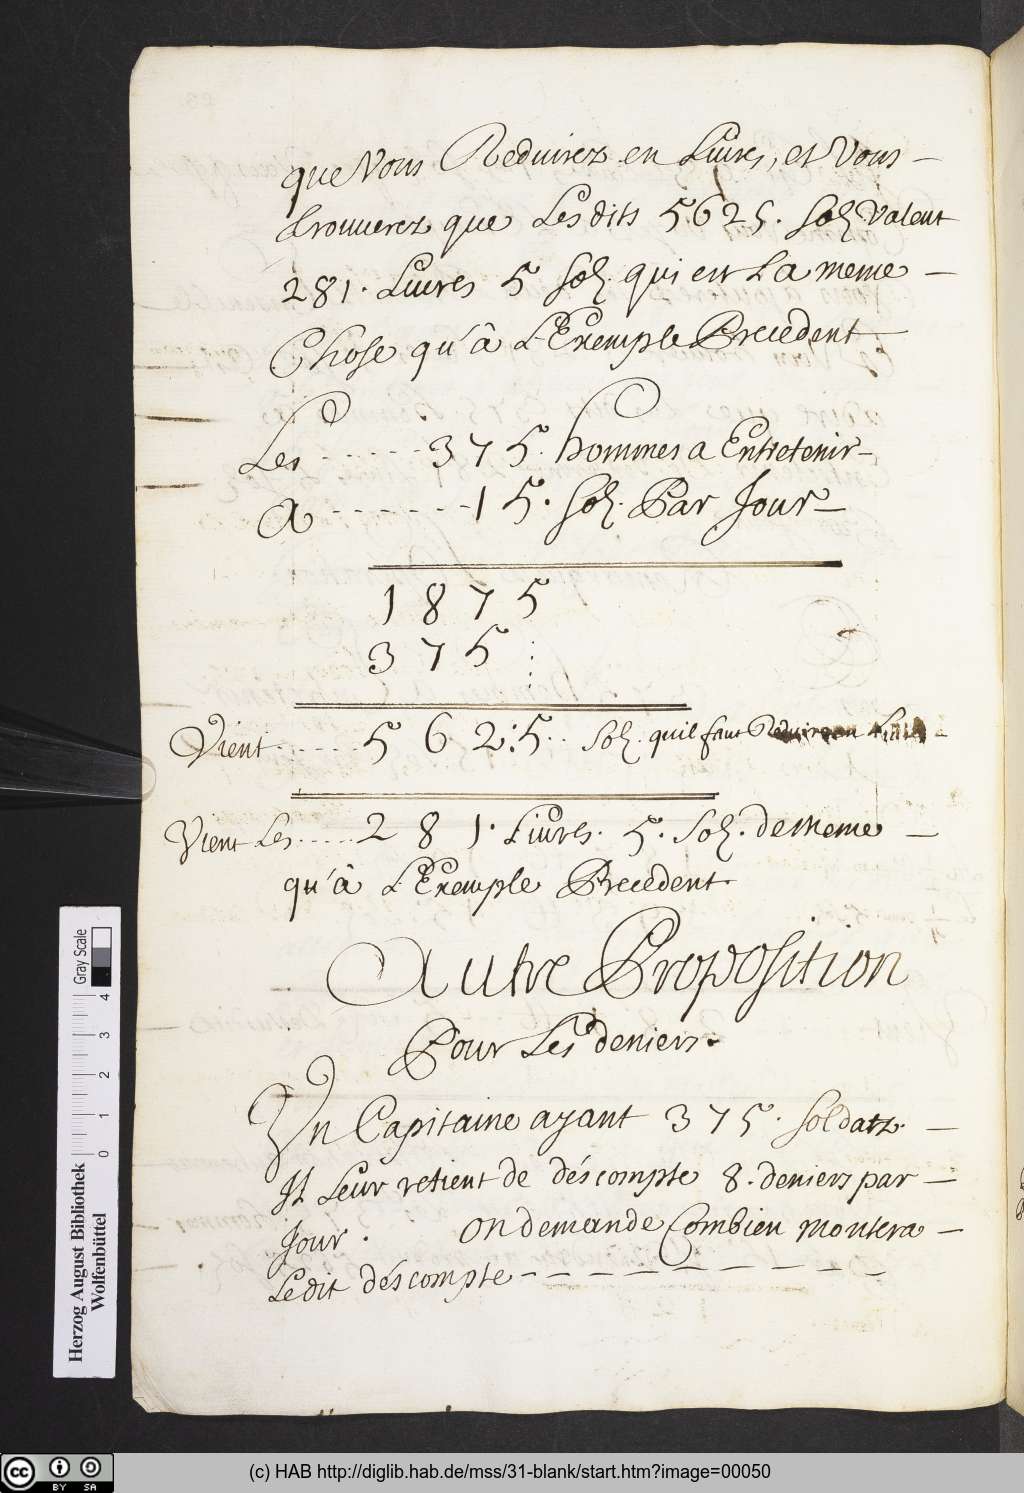 que Vous Reduirez en Liures, et Vous –
trouuerez que Lesdits 5625. Solz Valent
281. Liures 5 Solz qui est La meme –
Chose qu'â L'Exemple Precedent
Les ------ 375. hommes a Entretenir –
A ------- 15. Solz. Par Jour –
1875
375
Vient ------ 5 6 2:5.. Solz. quil faut Reduire en
Vient Les ----- 2 8 1. Liures. 5. Solz. de meme –
qu'â L'Exemple Precedent
Autre Proposition
Pour Les deniers.
Un Capitaine ayant 375. Soldatz. –
Il Leur retient de déscompte 8. deniers par –
Jour. On demande Combien montera –
Ledit déscompte – – – – – – – – – –
Herzog August Bibliothek
Wolfenbüttel
0 1 2 3 4
Gray Scale
cc BY SA
(c) HAB http://diglib.hab.de/mss/31-blank/start.htm?image=00050